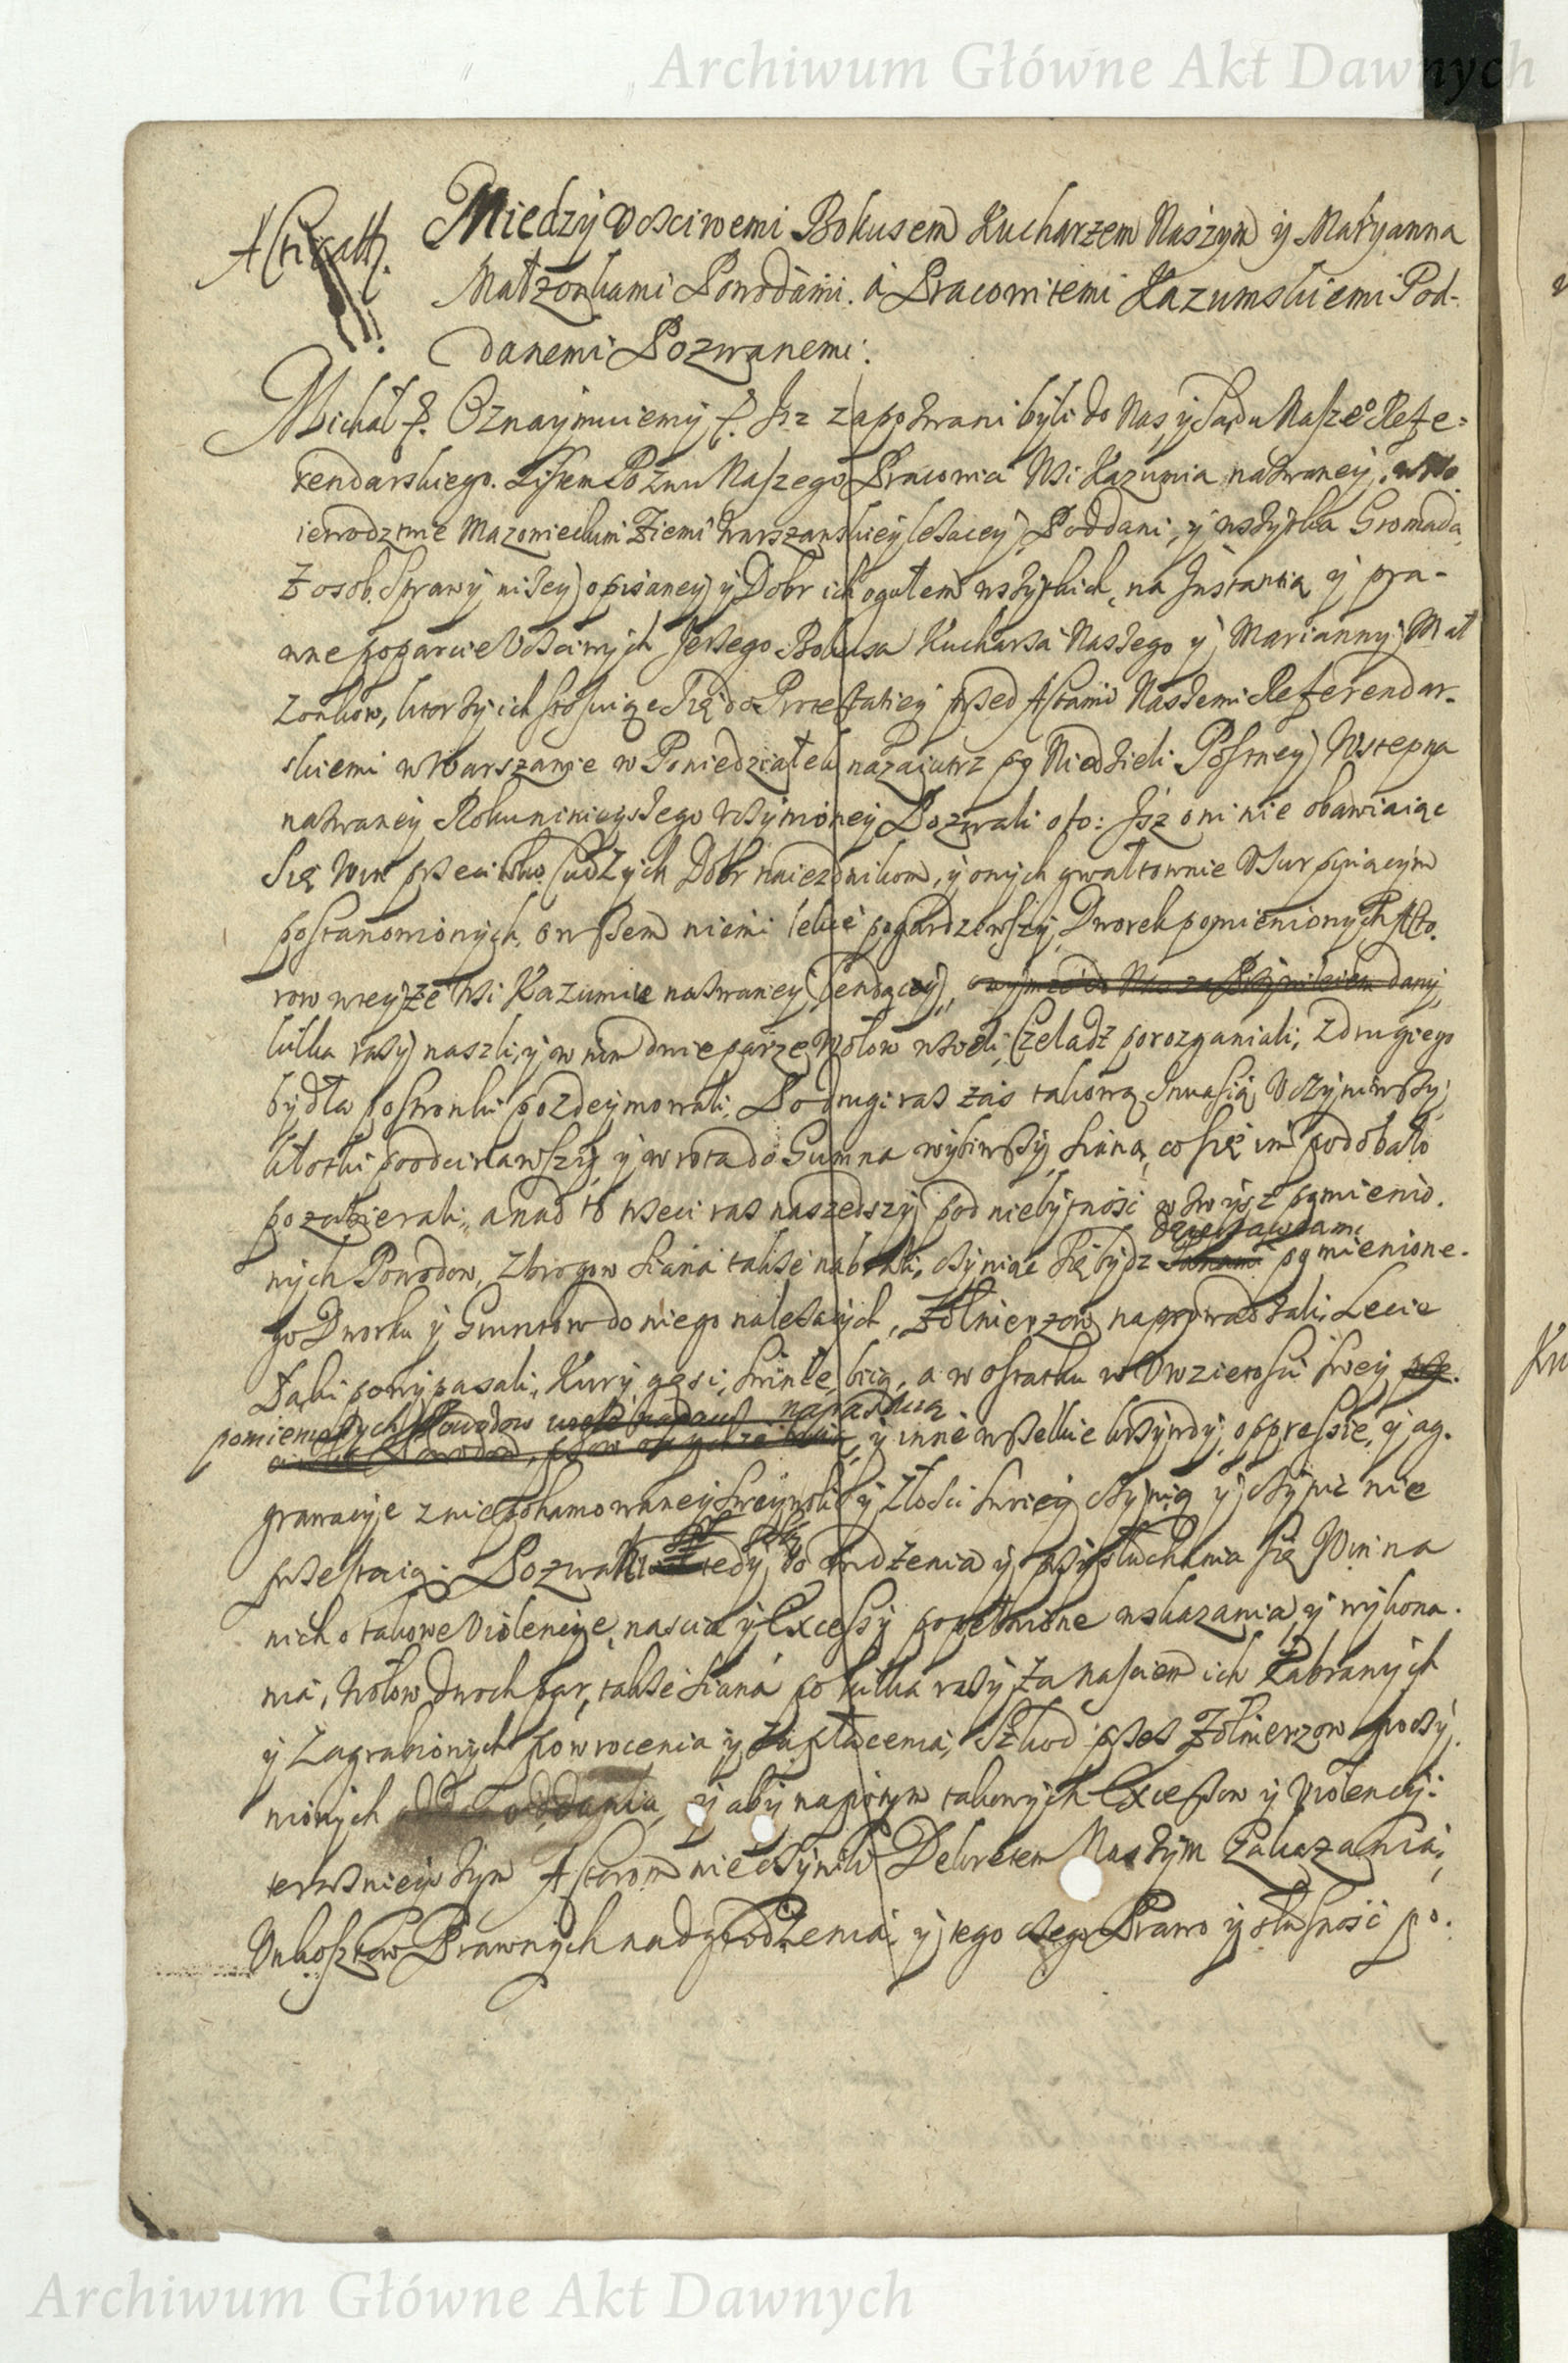 Archiwum Główne Akt Dawnych
Między Vcsciwemi Bokusem Kucharzem Naszym y Maryanna
Małzonkami Powodami. á Pracowitemi Kazumskiemi Pod-
danemi Pozwanemi.
Michał Oznaymuiemy Jsz zapozwani byli do Nas y Sądu Naszeo Refe-
rendarskiego. Listem Pozwu Naszego Pracowici Wsi Kazumia nazwaney, w Wo
iewodztwie Mazowieckim Ziemi Warszawskiey lezacey Poddani, y wszytka Gromada
Z osob. Sprawy nizey opisaney y Dobr ich ogułem wszytkich, na Instantią y pra-
wne poparcie Vcsciwych Jerzego Bokusa Kucharza Naszego y Marianny Mał
zonkow, ktorzy ich stosuiąc Się do Protestatiey przed Aktami Naszemi Referendar-
skiemi w Warszawie w Poniedziałek nazaiutrz po Niedzieli Postney Wstępna
nazwaney Roku ninieyszego vczynioney Pozwali oto: Jsz oni nie obawiaiąc
Się Win przeciwko Cudzych Dobr naiezdnikom, y onych gwałtownie Vsurpuiącym
postanowionych, owszem niemi lekce pogardziwszy, Dworek pomienionych Akto.
row wteyże Wsi Kazumie nazwaney Będący,
kilka razy naszli, y w nim dwie parze Wołow wzieli, Czeladz porozganiali, Zdrugiego
bydła postronki pozdeymowali, Po drugi raz zaś takową Inuasią Vczyniwszy,
kłotki poodcinawszy, y wrota do Gumna wybiwszy Siana, co się im podobało
pozabierali, a nad to trzeci raz naszedszy pod niebytnosć zwysz pomienio.
dzierzawcami
nych Powodow, Zbrogow Siana także nabrali, czyniąc się bydz pomienione.
go Dworku y Gruntow do niego nalezących, Zołnierzow naprowadzali, Lecie
Łąki powypasali, Kury, gęsi, Swinie, biią, a w ostatku w Vwziętości swey
pomienionych Powodow napastuią
y inne wszelkie krzywdy, oppressie, y ag.
grawacyie z niepohamowaney Swey woli y Złości swoiey czynią y czynić nie
przestaią. Pozwali tedy do widzenia y przysłuchania się Win na
nich o takowe Violencye, naścia y Excessy popełnione wskazania, y wykona.
nia, Wołow Dwoch par, także Siana po kilka razy za naściem ich Zabranych
y Zagrabionych powrocenia y Zapłacenia, Szkod przez Zołnierzow poczy.
nionych y aby napotym takowych Excessow y Violency:
teraznieyszym Aktorom nie czynili Dekretem Naszym Zakazania,
Vnkosztow Prawnych nadgrodzenia, y tego czego Prawo y słusność po.
Archiwum Główne Akt Dawnych